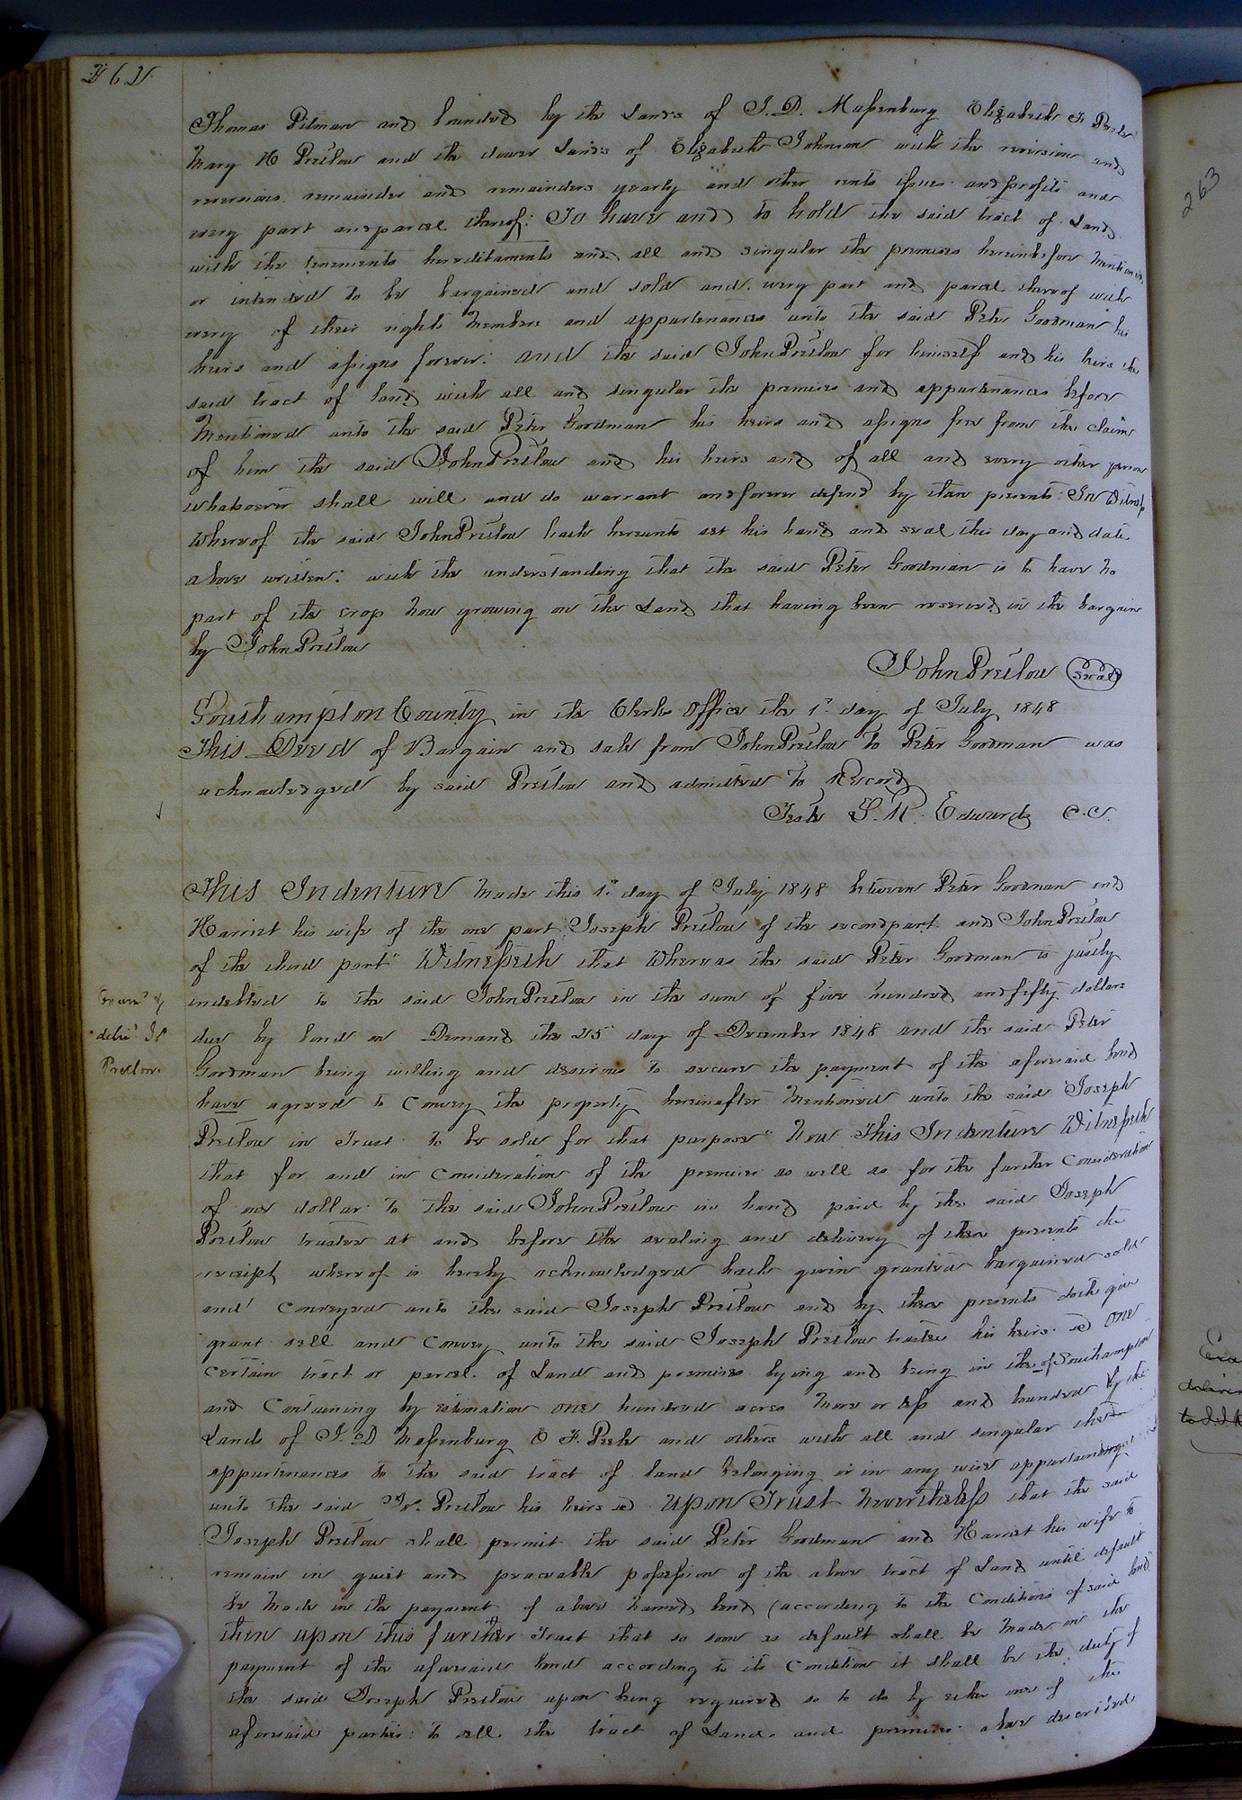 262
Thomas Pitman and bounded by the Lands of T. D. Massenburg Elizabeth F. Peete
Mary H Pretlow and the dower Lands of Elizabeth Johnson with the reversion and
reversions remainder and remainders yearly and other rents issues and profits and
every part and parcel thereof: To have and to hold the said tract of Land
with the tenements hereditaments and all and singular the premises hereinbefore mentioned
or intended to be bargained and sold and every part and parcel thereof with
every of their rights members and appurtenances unto the said Peter Goodman his
heirs and assigns forever: and the said John Pretlow for himself and his heirs the
said tract of land with all and singular the premises and appurtenances before
mentioned unto the said Peter Goodman his heirs and assigns free from the claim
of him the said John Pretlow and his heirs and of all and every other person
whatsoever shall will and do warrant and forever defend by these presents: In Witness
whereof the said John Pretlow hath hereunto set his hand and seal this day and date
above written: with the understanding that the said Peter Goodman is to have no
part of the crop now growing on the Land that having been reserved in the bargain
by John Pretlow
John Pretlow Seal
Southampton County in the Clerks Office the 1st day of July 1848
This Deed of Bargain and sale from John Pretlow to Peter Goodman was
acknowledged by said Pretlow and admitted to Record
Teste L. R. Edwards C.C.
This Indenture made this 1st day of July 1848 between Peter Goodman and
Harriet his wife of the one part Joseph Pretlow of the second part and John Pretlow
of the third part Witnesseth that Whereas the said Peter Goodman is justly
indebted to the said John Pretlow in the sum of five hundred and fifty dollars
due by bond on Demand the 25th day of December 1848 and the said Peter
Goodman being willing and desirous to secure the payment of the aforesaid bond
have agreed to convey the property hereinafter mentioned unto the said Joseph
Pretlow in Trust to be sold for that purpose Now This Indenture Witnesseth
that for and in consideration of the premises as well as for the further consideration
of one dollar to the said John Pretlow in hand paid by the said Joseph
Pretlow trustee at and before the sealing and delivery of these presents the
receipt whereof is hereby acknowledged hath given granted bargained sold
and conveyed unto the said Joseph Pretlow and by these presents doth give
grant sell and convey unto the said Joseph Pretlow trustee his heirs &c one
certain tract or parcel of Land and premises lying and being in the of Southampton
and containing by estimation one hundred acres more or less and bounded by the
Lands of T. D Massenburg E F. Peete and others with all and singular the
appurtenances to the said tract of land belonging or in any wise appertaining
unto the said Jos. Pretlow his heirs &c Upon Trust Nevertheless that the said
Joseph Pretlow shall permit the said Peter Goodman and Harriet his wife to
remain in quiet and peaceable possession of the above tract of Land until default
be made in the payment of above named bond (according to the conditions of said bond
then upon this further Trust that so soon as default shall be made in the
payment of the aforesaid bond according to its condition it shall be the duty of
the said Joseph Pretlow upon being required so to do by either one of the
aforesaid parties to sell the tract of Land and premises above described
Exam'd &
deliv'd J P
Pretlow
263